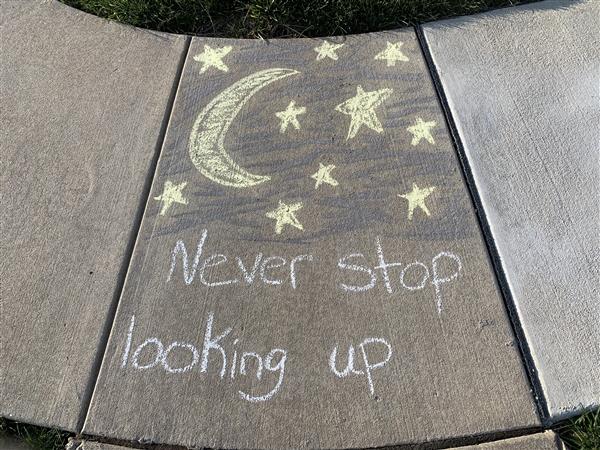 Never stop
looking up